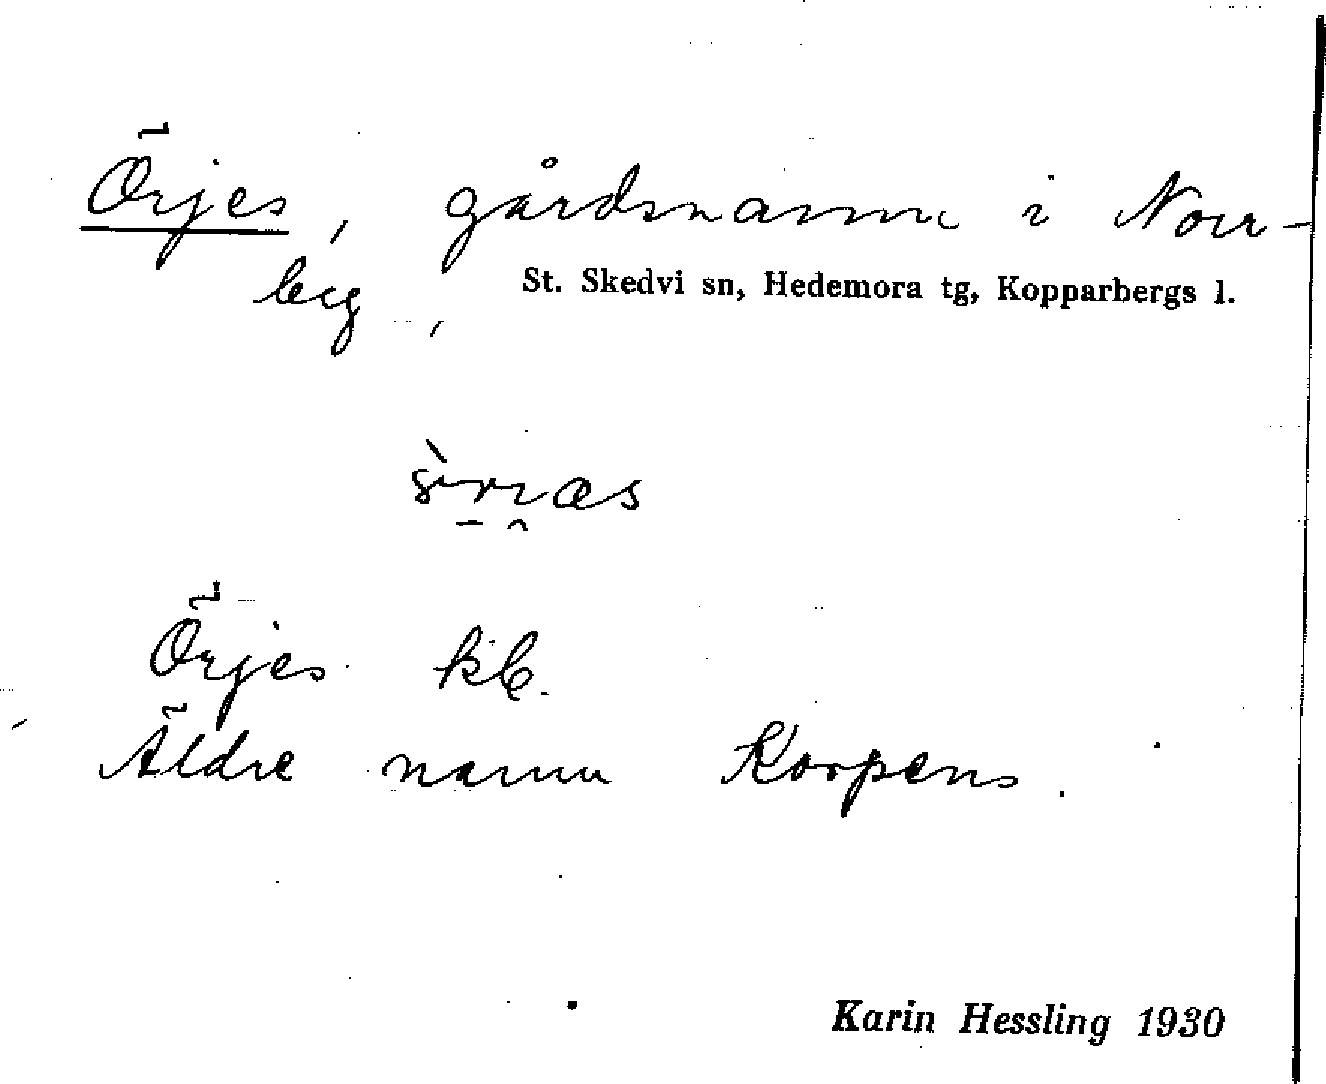 Örjes, gårdsnamn i Norr-
berg,
St. Skedvi sn, Hedemora tg, Kopparbergs l.
Örjes kb.
Äldre namn Korpens.
Karin Hessling 1930